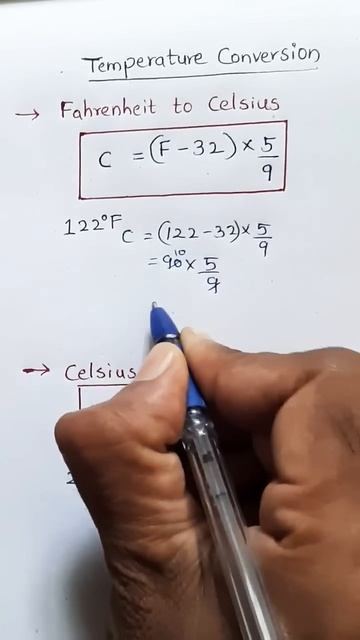 Temperature Conversion
→ Fahrenheit to Celsius
C = (F - 32) × 5/9
122°F C = (122 - 32) × 5/9
= 90 10 × 5/9
→ Celsius